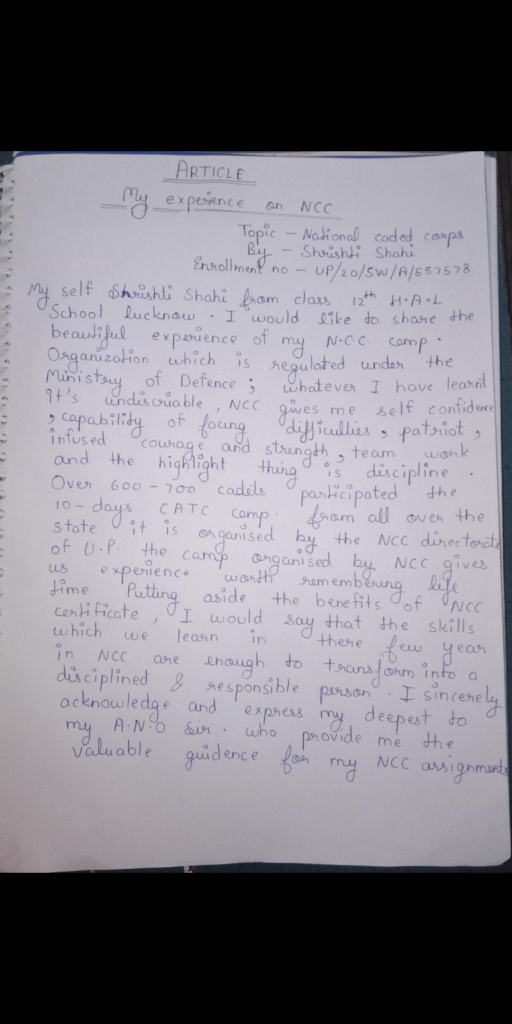 ARTICLE
My experience on NCC
Topic - National coded corps
By - Shrishti Shahi
Enrollment no - UP/20/SW/A/557578
My self Shrishti Shahi from class 12th H.A.L
School lucknow. I would like to share the
beautiful experience of my N.C.C. camp.
Organization which is regulated under the
Ministry of Defence; whatever I have learnt
It's undiscriable, NCC gives me self confidence
, capability of facing difficulties, patriot,
infused courage and strength, team work
and the highlight thing is discipline.
Over 600-700 cadets participated the
10-days CATC camp. from all over the
state it is organised by the NCC directorate
of U.P. the camp organised by NCC gives
us experience worth remembering life
time Putting aside the benefits of NCC
certificate, I would say that the skills
which we learn in there few year
in NCC are enough to transform into a
disciplined & responsible person. I sincerely
acknowledge and express my deepest to
my A.N.O Sir. who provide me the
valuable guidence for my NCC assignments